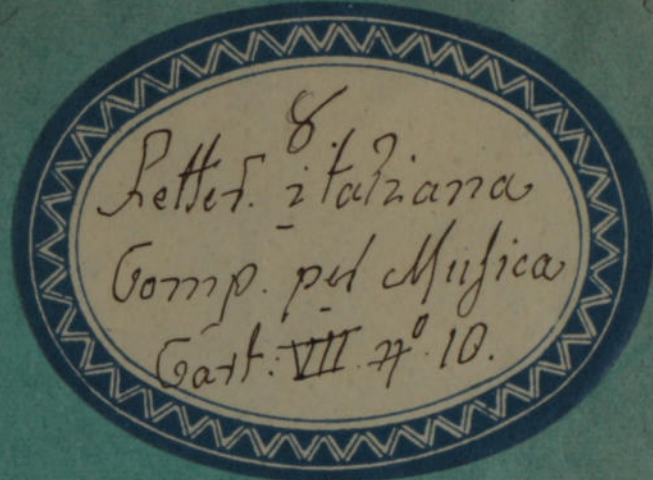 8
Letter. italiana
Comp. per Musica
Cart: VII. nº. 10.